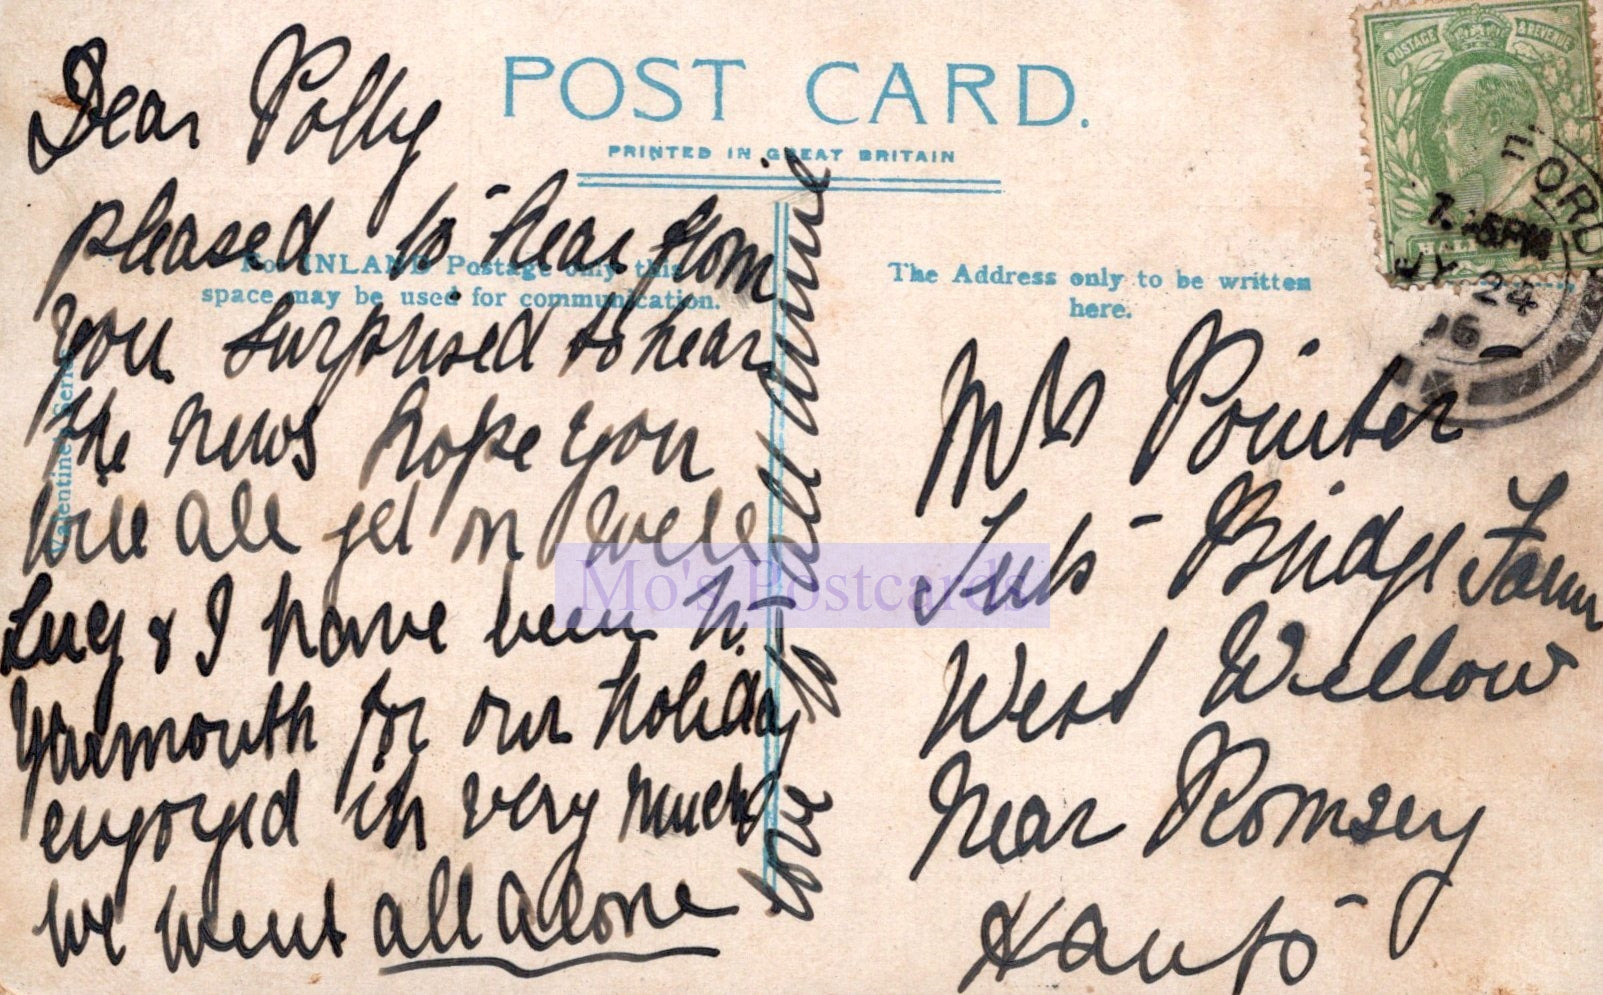 POST CARD.
PRINTED IN GREAT BRITAIN
For INLAND Postage only this
space may be used for communication.
The Address only to be written
here.
Valentine's Series
Dear Polly
pleased to hear from
you surprised to hear
the news hope you
will all get on well
Lucy & I have been to
Yarmouth for our holiday
enjoyed it very much
we went all alone
love to all Annie
Mrs Pointer
Bridge Farm
West Wellow
Near Romsey
Hants
POSTAGE & REVENUE
HALF
FORD
5PM
JY 24
06
Mo's Postcards